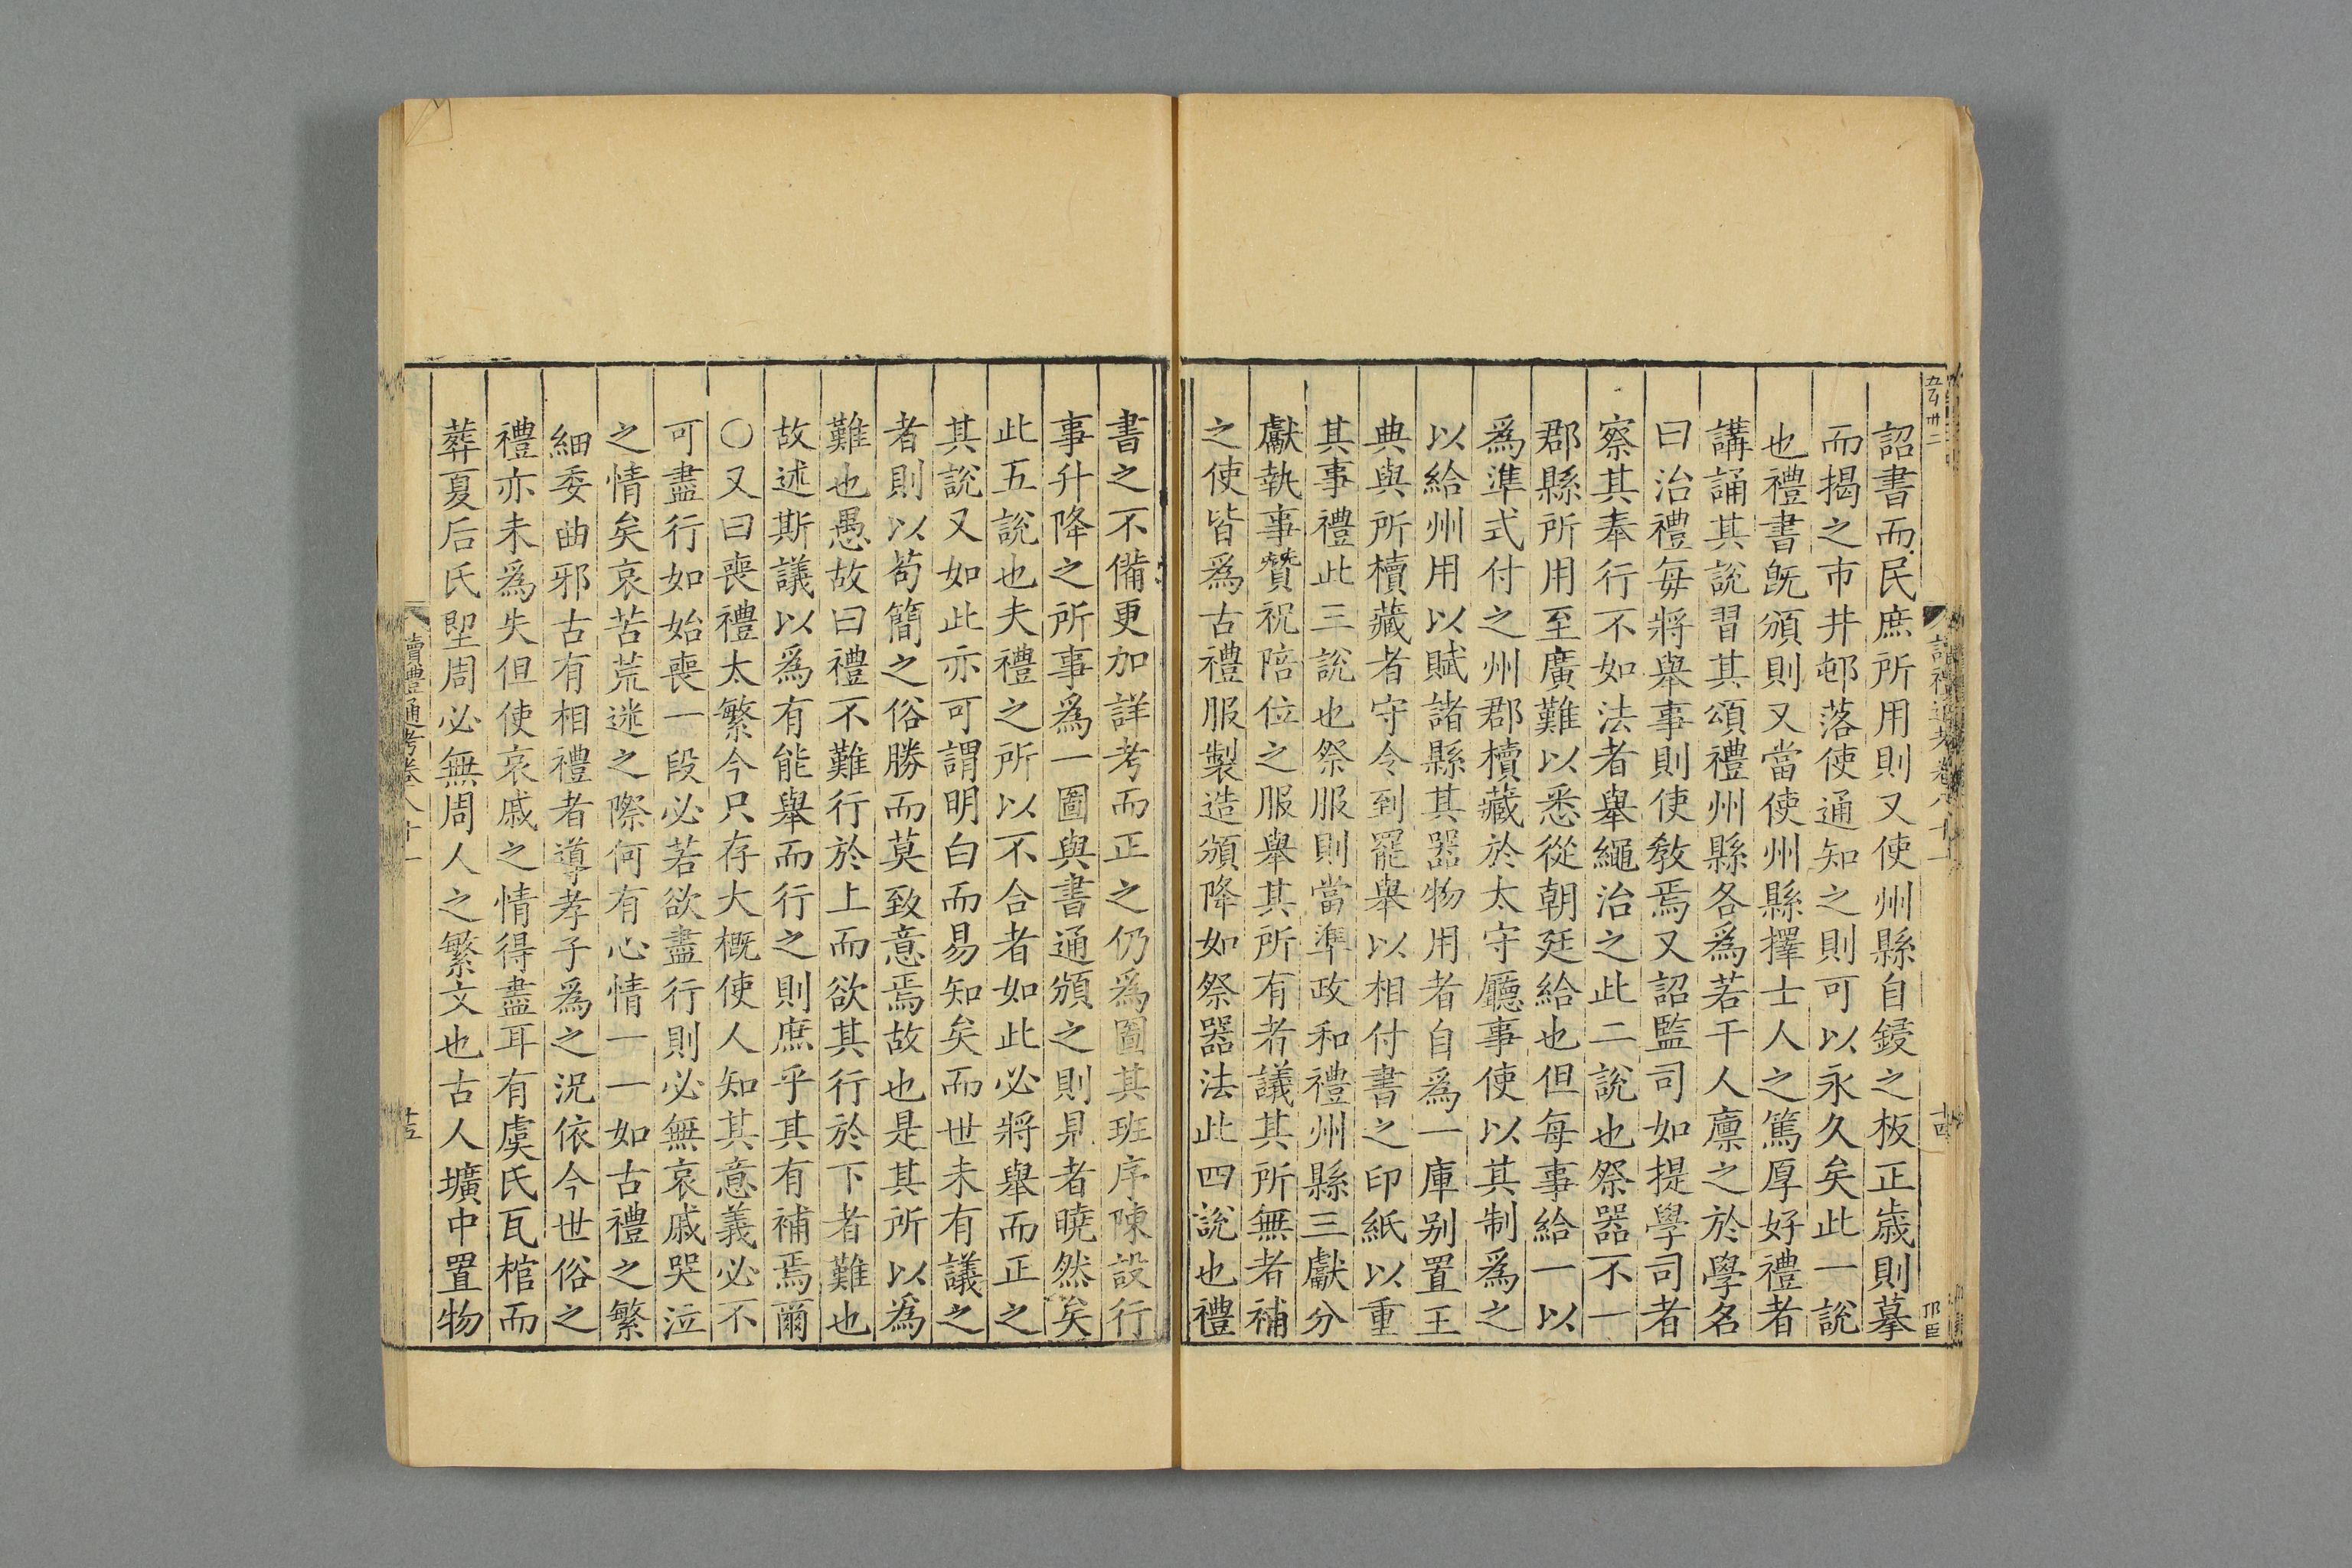 詔書而民庶所用則又使州縣自鋟之板正歲則摹
而揭之市井邨落使通知之則可以永久矣此一說
也禮書既頒則又當使州縣擇士人之篤厚好禮者
講誦其說習其頌禮州縣各爲若干人廩之於學名
曰治禮每將舉事則使敎焉又詔監司如提學司者
察其奉行不如法者舉繩治之此二說也祭器不一
郡縣所用至廣難以悉從朝廷給也但每事給一以
爲準式付之州郡櫝藏於太守廳事使以其制爲之
以給州用以賦諸縣其器物用者自爲一庫别置王
典與所櫝藏者守令到罷舉以相付書之印紙以重
其事禮此三說也祭服則當準政和禮州縣三獻分
獻執事贊祝陪位之服舉其所有者議其所無者補
之使皆爲古禮服製造頒降如祭器法此四說也禮
書之不備更加詳考而正之仍爲圖其班序陳設行
事升降之所事爲一圖與書通頒之則見者曉然矣
此五說也夫禮之所以不合者如此必將舉而正之
其說又如此亦可謂明白而易知矣而世未有議之
者則以茍簡之俗勝而莫致意焉故也是其所以爲
難也愚故曰禮不難行於上而欲其行於下者難也
故述斯議以爲有能舉而行之則庶乎其有補焉爾
○又曰喪禮太繁今只存大概使人知其意義必不
可盡行如始喪一段必若欲盡行則必無哀戚哭泣
之情矣哀苦荒迷之際何有心情一一如古禮之繁
細委曲邪古有相禮者導孝子爲之況依今世俗之
禮亦未爲失但使哀戚之情得盡耳有虞氏瓦棺而
葬夏后氏堲周必無周人之繁文也古人壙中置物
讀禮通考卷八十一